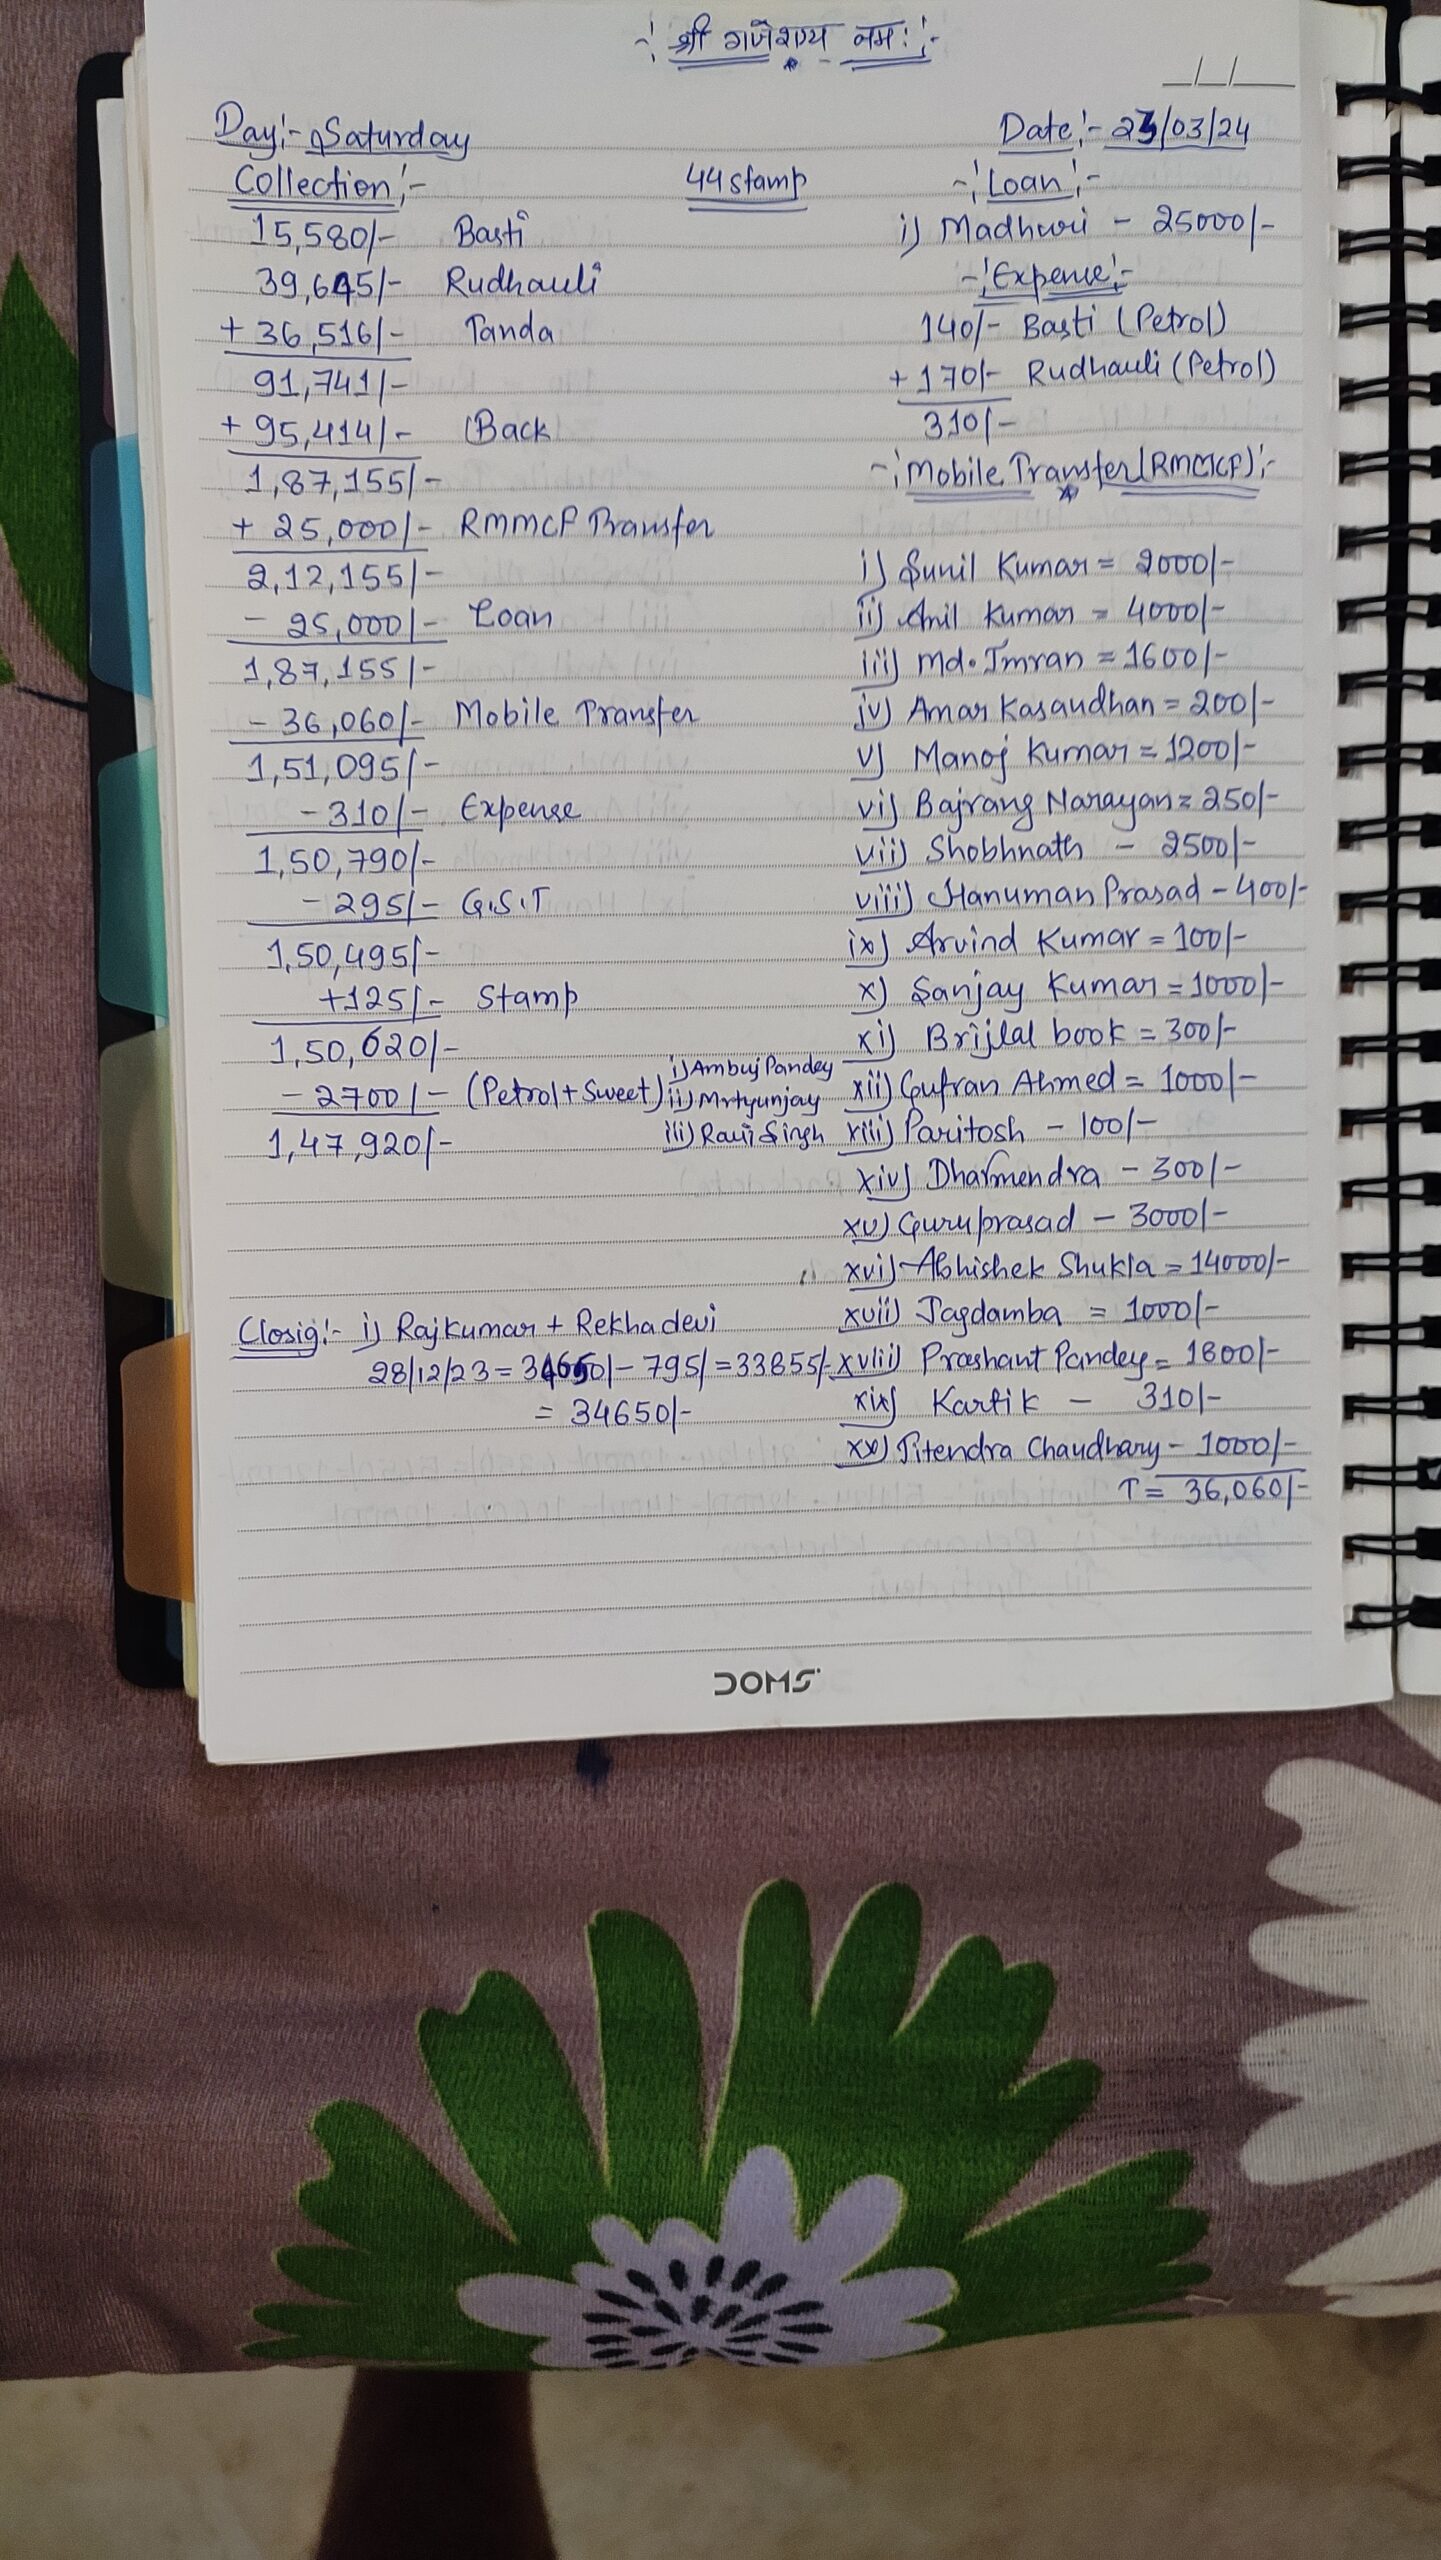 श्री गणेशाय नमः
_/_/_
Day:- Saturday
Date:- 23/03/24
Collection:-
44 stamp
15,580/- Basti
39,645/- Rudhauli
+ 36,516/- Tanda
91,741/-
+ 95,414/- Back
1,87,155/-
+ 25,000/- RMMCF Transfer
2,12,155/-
- 25,000/- Loan
1,87,155/-
- 36,060/- Mobile Transfer
1,51,095/-
- 310/- Expense
1,50,790/-
- 295/- G.S.T
1,50,495/-
+125/- Stamp
1,50,620/-
- 2700/- (Petrol + Sweet)
i) Ambuj Pandey
ii) Mrtyunjay
iii) Ravi Singh
1,47,920/-
-:Loan:-
i) Madhuri - 25000/-
-:Expense:-
140/- Basti (Petrol)
+ 170/- Rudhauli (Petrol)
310/-
-:Mobile Transfer (RMMCF):-
i) Sunil Kumar = 2000/-
ii) Anil Kumar = 4000/-
iii) Md. Imran = 1600/-
iv) Amar Kasaudhan = 200/-
v) Manoj Kumar = 1200/-
vi) Bajrang Narayan = 250/-
vii) Shobhnath - 2500/-
viii) Hanuman Prasad - 400/-
ix) Arvind Kumar = 100/-
x) Sanjay Kumar = 1000/-
xi) Brijlal book = 300/-
xii) Gufran Ahmed = 1000/-
xiii) Paritosh - 100/-
xiv) Dharmendra - 300/-
xv) Guruprasad - 3000/-
xvi) Abhishek Shukla = 14000/-
xvii) Jagdamba = 1000/-
xviii) Prashant Pandey = 1800/-
xix) Kartik - 310/-
xx) Jitendra Chaudhary - 1000/-
T = 36,060/-
Closig:- i) Rajkumar + Rekha devi
28/12/23 = 34650/- - 795/- = 33855/-
= 34650/-
DOMS